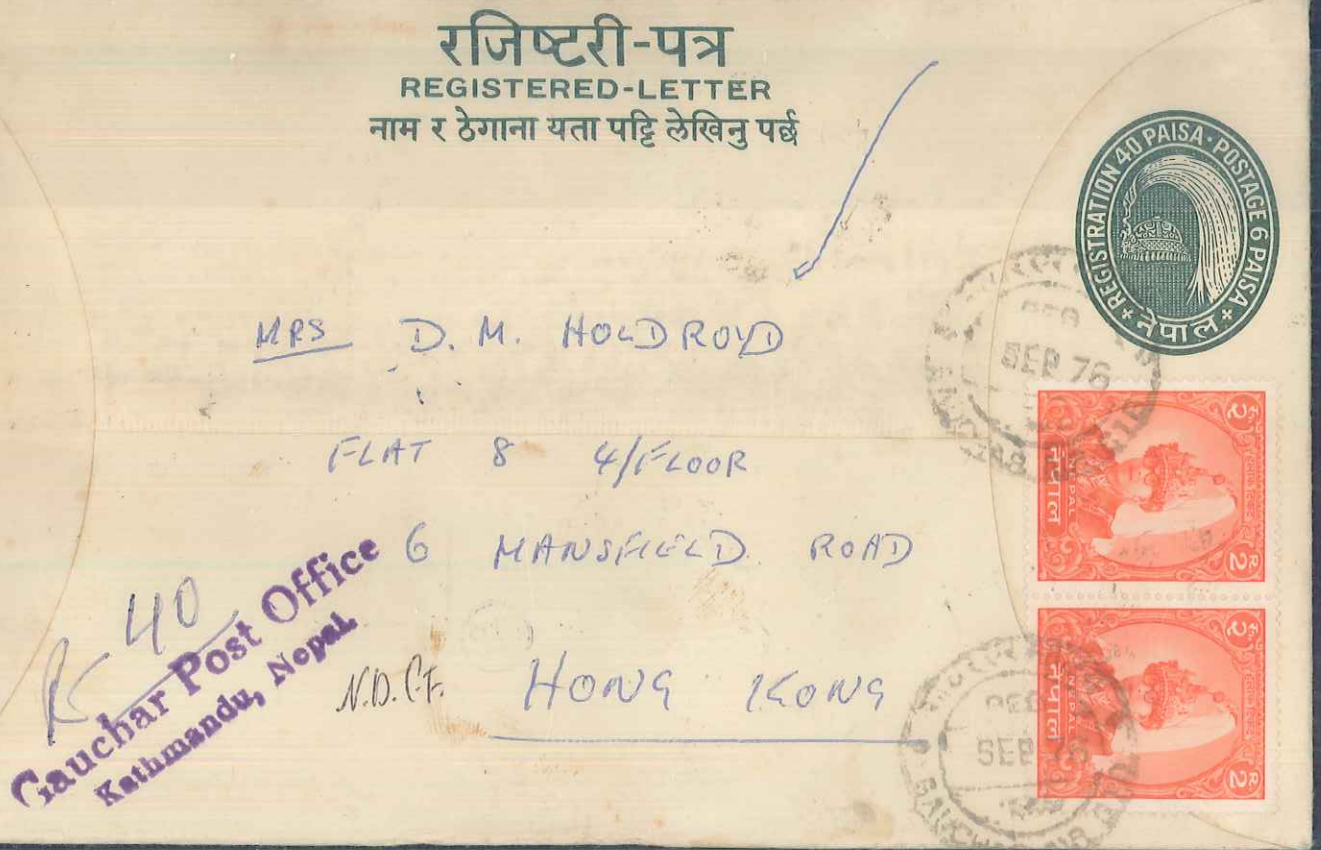 रजिष्टरी-पत्र
REGISTERED-LETTER
नाम र ठेगाना यता पट्टि लेखिनु पर्छ
REGISTRATION 40 PAISA · POSTAGE 6 PAISA
नेपाल
SEP 76
MRS D. M. HOLDROYD
FLAT 8 4/FLOOR
6 MANSFIELD ROAD
HONG KONG
N.D.
R 40
Gauchar Post Office
Kathmandu, Nepal
नेपाल
NEPAL
२
2
नेपाल
NEPAL
२
2
REG
SEP 76